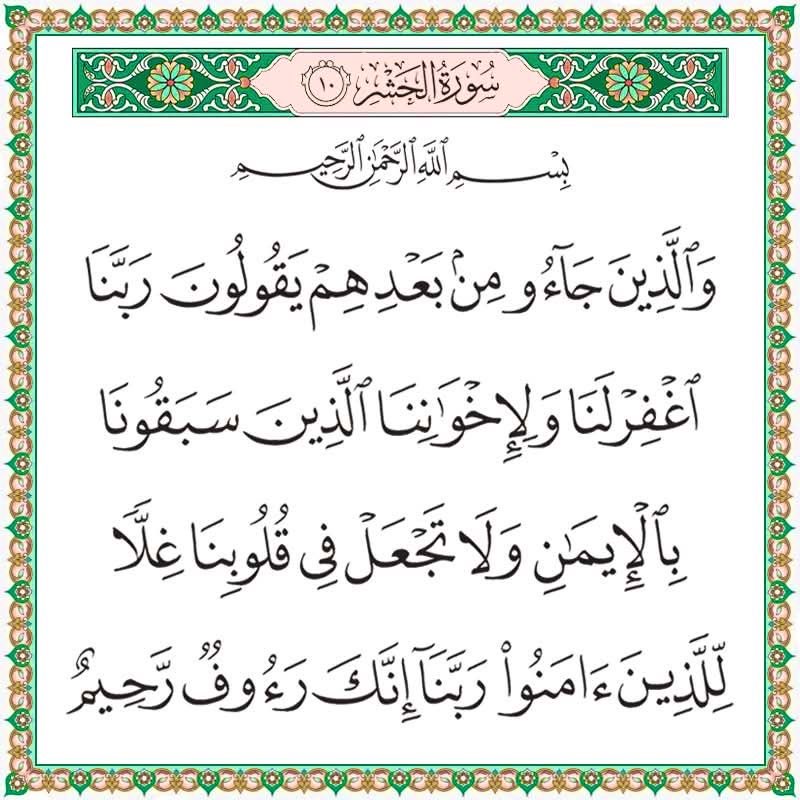 سُورَةُ الحَشْرِ ١٠
بِسْمِ ٱللَّهِ ٱلرَّحْمَٰنِ ٱلرَّحِيمِ
وَٱلَّذِينَ جَآءُو مِنۢ بَعْدِهِمْ يَقُولُونَ رَبَّنَا
ٱغْفِرْ لَنَا وَلِإِخْوَٰنِنَا ٱلَّذِينَ سَبَقُونَا
بِٱلْإِيمَٰنِ وَلَا تَجْعَلْ فِى قُلُوبِنَا غِلًّا
لِّلَّذِينَ ءَامَنُوا۟ رَبَّنَآ إِنَّكَ رَءُوفٌ رَّحِيمٌ